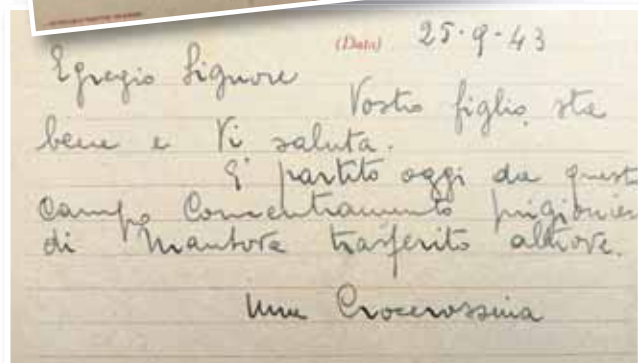 (Data) 25·9·43
Egregio Signore
Vostro figlio sta
bene e Vi saluta.
E' partito oggi da quest
Campo Concentramento prigionier
di Mantova trasferito altrove.
Una Crocerossina